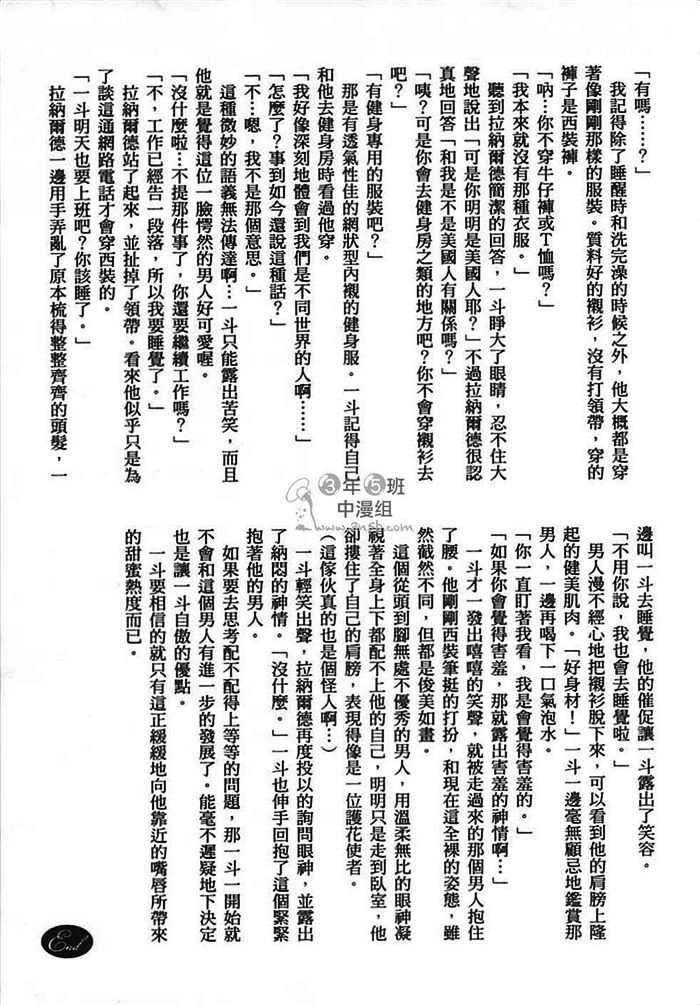 「有嗎……？」
　我記得除了睡醒時和洗完澡的時候之外，他大概都是穿
著像剛剛那樣的服裝。質料好的襯衫，沒有打領帶，穿的
褲子是西裝褲。
「吶…你不穿牛仔褲或T恤嗎？」
「我本來就沒有那種衣服。」
　聽到拉納爾德簡潔的回答，一斗睜大了眼睛，忍不住大
聲地說出「可是你明明是美國人耶？」不過拉納爾德很認
真地回答「和我是不是美國人有關係嗎？」
「咦？可是你會去健身房之類的地方吧？你不會穿襯衫去
吧？」
「有健身專用的服裝吧？」
　那是有透氣性佳的網狀型內襯的健身服。一斗記得自己
和他去健身房時看過他穿。
「我好像深刻地體會到我們是不同世界的人啊……」
「怎麼了？事到如今還說這種話？」
「不…嗯，我不是那個意思。」
　這種微妙的語義無法傳達啊…一斗只能露出苦笑，而且
他就是覺得這位一臉愕然的男人好可愛喔。
「沒什麼啦…不提那件事了，你還要繼續工作嗎？」
「不，工作已經告一段落，所以我要睡覺了。」
　拉納爾德站了起來，並扯掉了領帶。看來他似乎只是為
了談這通網路電話才會穿西裝的。
「一斗明天也要上班吧？你該睡了。」
　拉納爾德一邊用手弄亂了原本梳得整整齊齊的頭髮，一
邊叫一斗去睡覺，他的催促讓一斗露出了笑容。
「不用你說，我也會去睡覺啦。」
　男人漫不經心地把襯衫脫下來，可以看到他的肩膀上隆
起的健美肌肉。「好身材！」一斗一邊毫無顧忌地鑑賞那
男人，一邊再喝下一口氣泡水。
「你一直盯著我看，我是會覺得害羞的。」
「如果你會覺得害羞，那就露出害羞的神情啊…」
　一斗才一發出嘻嘻的笑聲，就被走過來的那個男人抱住
了腰。他剛剛西裝筆挺的打扮，和現在這全裸的姿態，雖
然截然不同，但都是俊美如畫。
　這個從頭到腳無處不優秀的男人，用溫柔無比的眼神凝
視著全身上下都配不上他的自己，明明只是走到臥室，他
卻摟住了自己的肩膀，表現得像是一位護花使者。
（這傢伙真的也是個怪人啊…）
　一斗輕笑出聲，拉納爾德再度投以的詢問眼神，並露出
了納悶的神情。「沒什麼。」一斗也伸手回抱了這個緊緊
抱著他的男人。
　如果要去思考配不配得上等等的問題，那一斗一開始就
不會和這個男人有進一步的發展了。能毫不遲疑地下決定
也是讓一斗自傲的優點。
　一斗要相信的就只有這正緩緩地向他靠近的嘴唇所帶來
的甜蜜熱度而已。
End
3年5班
中漫組
www.3n5b.com